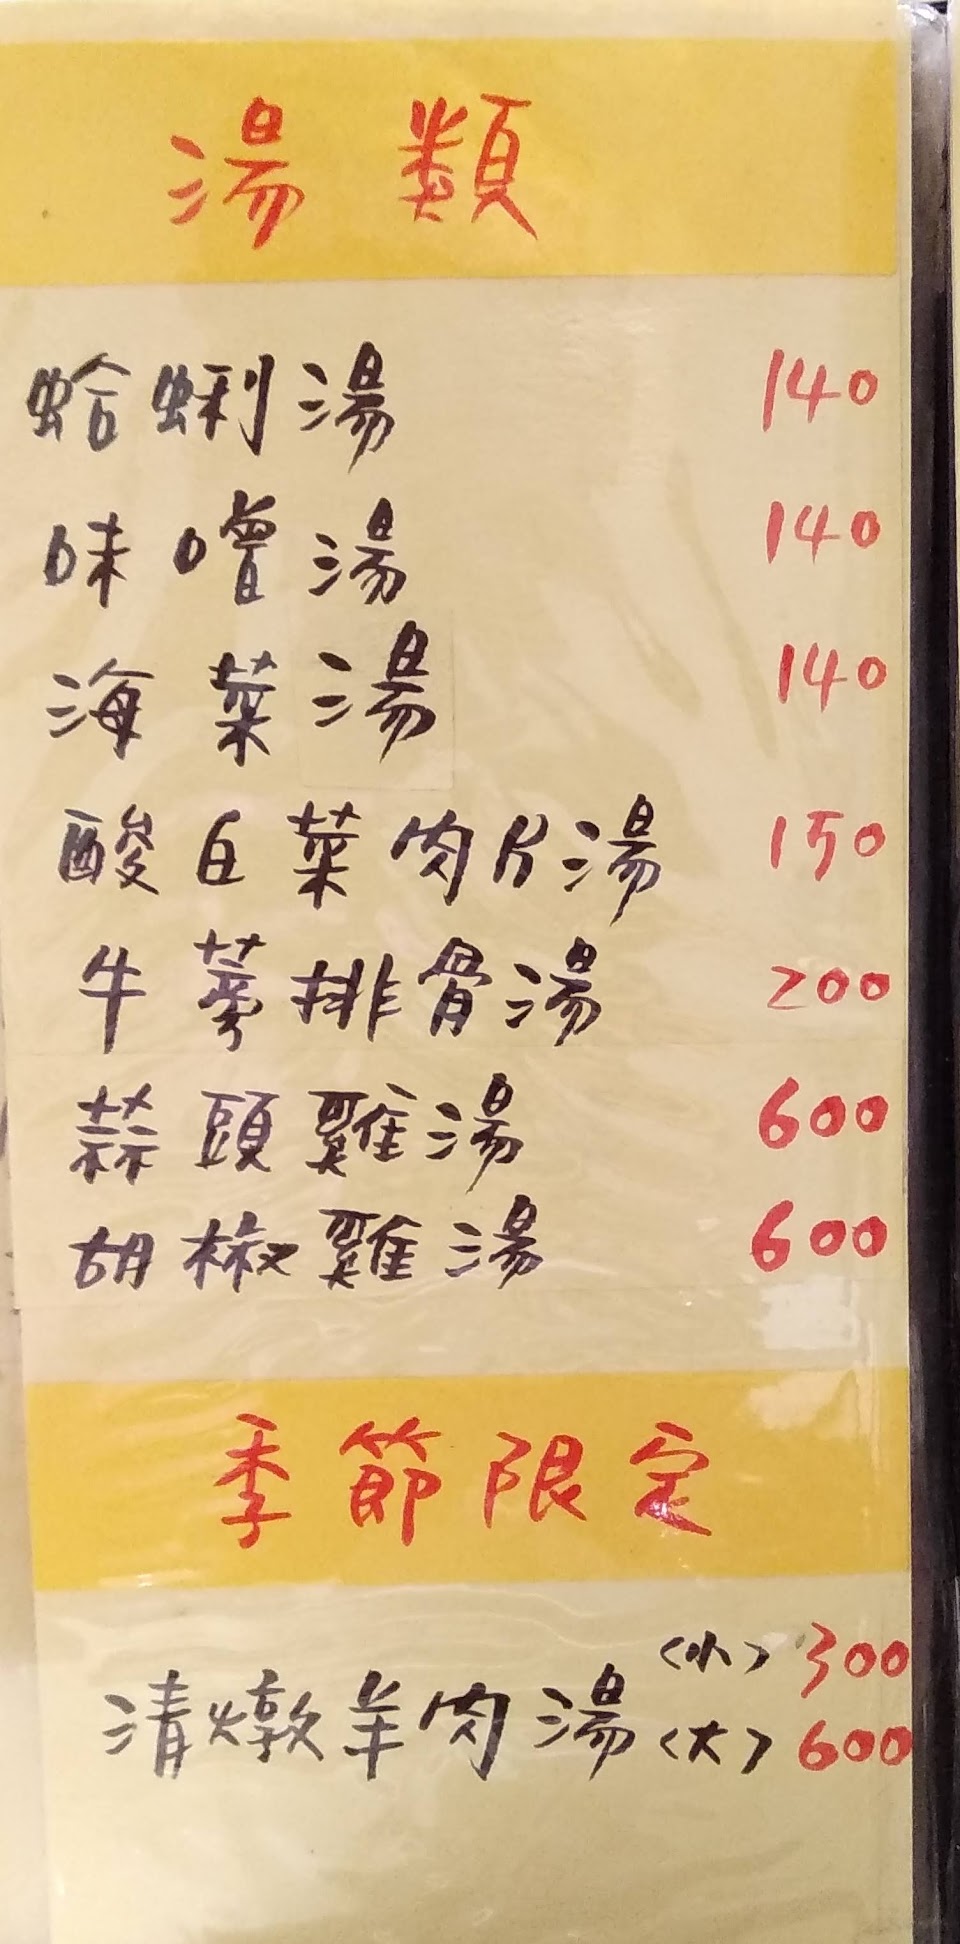 湯類
蛤蜊湯 140
味噌湯 140
海菜湯 140
酸白菜肉片湯 150
牛蒡排骨湯 200
蒜頭雞湯 600
胡椒雞湯 600
季節限定
清燉羊肉湯 (小) 300
(大) 600